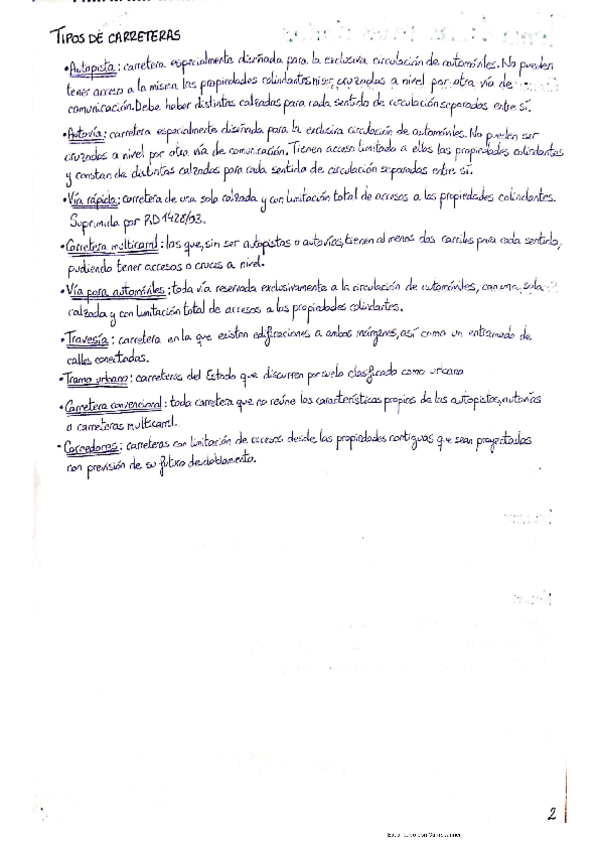 TIPOS DE CARRETERAS
•Autopista: carretera especialmente diseñada para la exclusiva circulación de automóviles. No pueden
tener acceso a la misma las propiedades colindantes ni ser cruzadas a nivel por otra vía de
comunicación. Debe haber distintas calzadas para cada sentido de circulación separadas entre sí.
•Autovía: carretera especialmente diseñada para la exclusiva circulación de automóviles. No pueden ser
cruzadas a nivel por otra vía de comunicación. Tienen acceso limitado a ellas las propiedades colindantes
y constan de distintas calzadas para cada sentido de circulación separadas entre sí.
•Vía rápida: carretera de una sola calzada y con limitación total de accesos a las propiedades colindantes.
Suprimida por RD 1428/03.
•Carretera multicarril: las que, sin ser autopistas o autovías, tienen al menos dos carriles para cada sentido,
pudiendo tener accesos o cruces a nivel.
•Vía para automóviles: toda vía reservada exclusivamente a la circulación de automóviles, con una sola
calzada y con limitación total de accesos a las propiedades colindantes.
•Travesía: carretera en la que existen edificaciones a ambos márgenes, así como un entramado de
calles conectadas.
•Tramo urbano: carreteras del Estado que discurren por suelo clasificado como urbano
•Carretera convencional: toda carretera que no reúne las características propias de las autopistas, autovías
o carreteras multicarril.
-Corredores: carreteras con limitación de accesos desde las propiedades contiguas que sean proyectadas
con previsión de su futuro desdoblamiento.
2